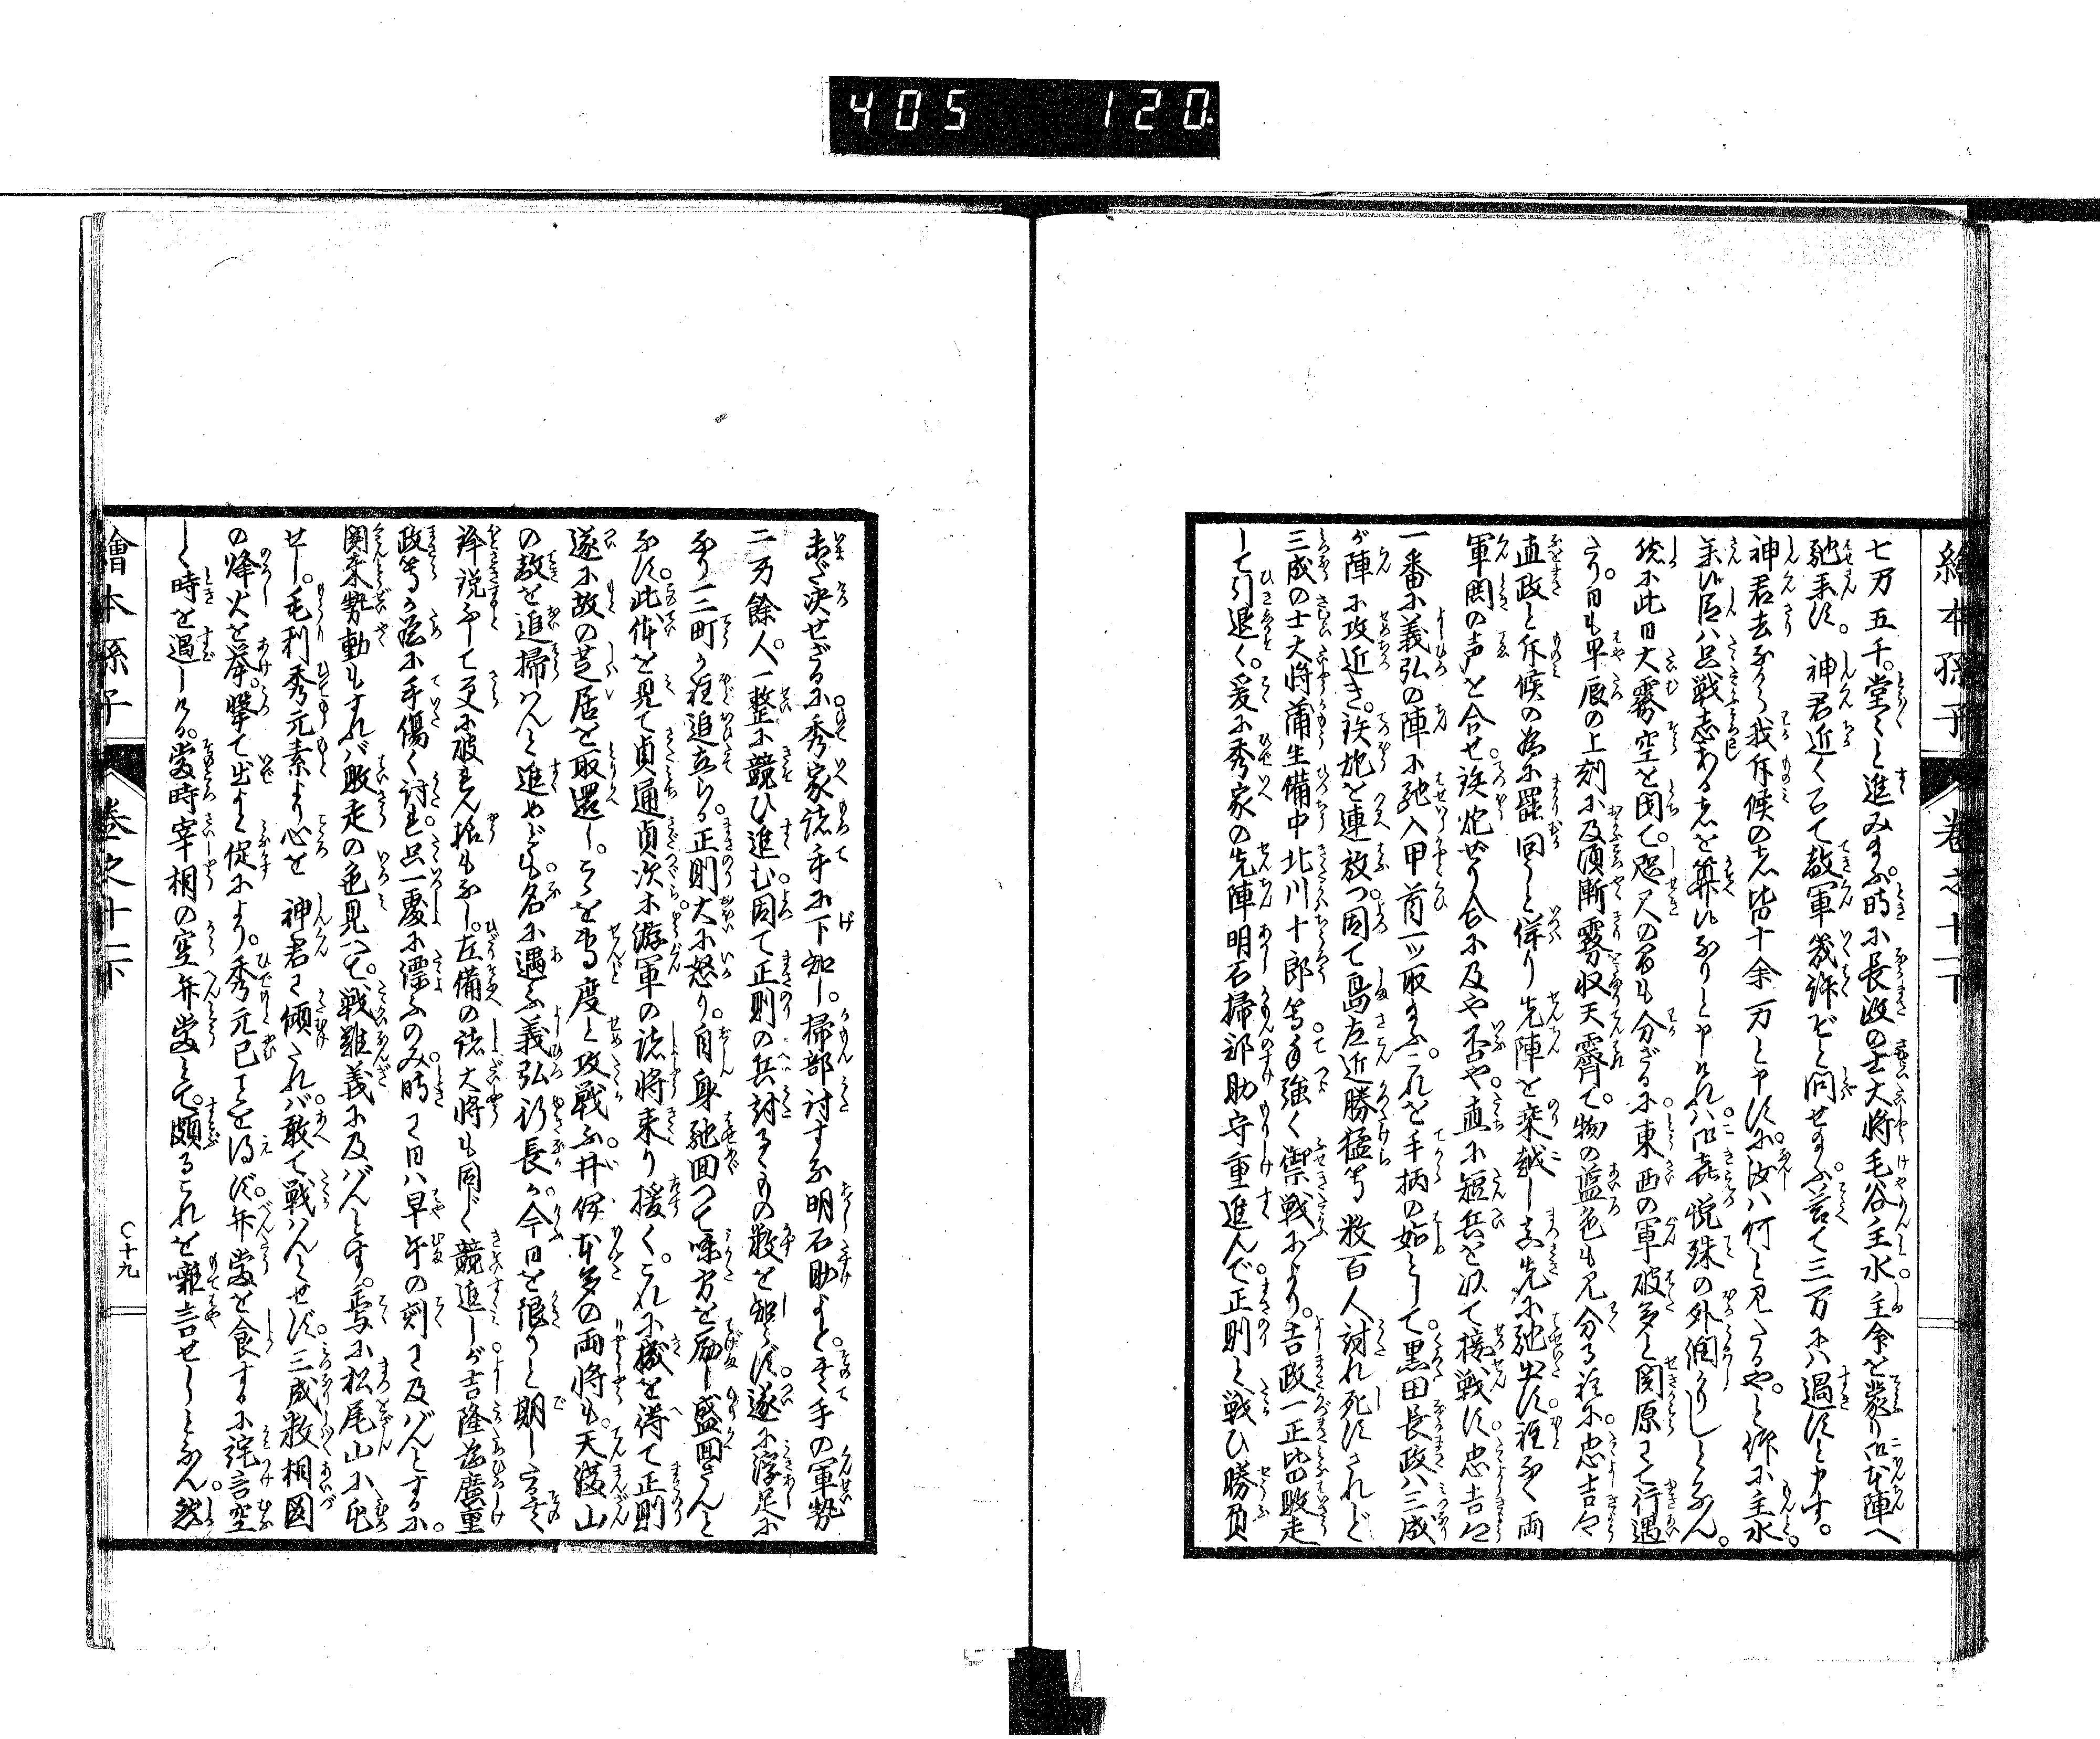 405 120
繪本孫子 巻之十二下
七万五千。堂々と進みます。時に長政の士大将毛谷主水。主命を蒙り御本陣へ
馳来ル。神君近く召て敵軍幾許ぞと問せ玉ふ。答て三万には過ずと申す。
神君去ながら我斥候の者皆十余万と申すに汝は何と見たるや。と仰に主水。
某は只戦志ある者を算ルなりと申けれハ御喜悦殊の外潤かりしとなん。
然に此日大霧空を閉て。咫尺の間も分ざるに東西の軍破多と関原にて行遇
たり。日も早辰の上刻に及頃漸霧収天霽て。物の藍色も見分る程に。忠吉々
直政と斥候の為に罷回ると偽り先陣を乗越し真先に馳出す程なく両
軍鬨の声を合せ。鉄炮ぜり合に及や否や。直に短兵を以て接戦す。忠吉々
一番に義弘の陣に馳入甲首一ツ取玉ふ。これを手柄の始として。黒田長政ハ三成
が陣に攻近き。鉄炮を連放つ。因て島左近勝猛等数百人討れ死す。されど
三成の士大将蒲生備中北川十郎等。手強く禦戦により。吉政一正皆敗走
して引退く。爰に秀家の先陣明石掃部助守重進んで。正則と戦ひ勝負
未ダ決せざるに。秀家諸手に下知し。掃部討すな明石助よと。其手の軍勢
二万餘人。一整に競ひ進む。因て正則の兵討るゝもの数を知らず。遂に浮足に
なり二三町が程追立らる。正則大に怒り。自身馳回つて味方を励し盛回さんと
なす。此体を見て貞通貞次等。游軍の諸将来り援く。これに機を得て正則
遂に故の芝居を取還し。こゝを専度と攻戦ふ。井伊本多の両将も。天満山
の敵を追掃はんと進めども。名に遇ふ義弘行長が。今日を限りと期したる其
鋒説ふして更に破るべき様もなし。左備の諸大将も同じく競進しが吉隆為廣重
政等が為に手傷く討れ。只一処に漂ふのみ。時に日ハ早午の刻に及バんとするに。
関東勢動もすれバ敗走の色見へて。戦難義に及バんとす。爰に松尾山に屯
せし。毛利秀元素より心を 神君に傾たれバ。敢て戦はんとせず。三成数相図
の烽火を挙。撃て出よと促により。秀元已ことを得ず。弁當を食するに詫言空
しく時を過しける。當時宰相の空弁當とて。頗るこれを囃言せしとなん。然
繪本孫子 巻之十二下 〇十九